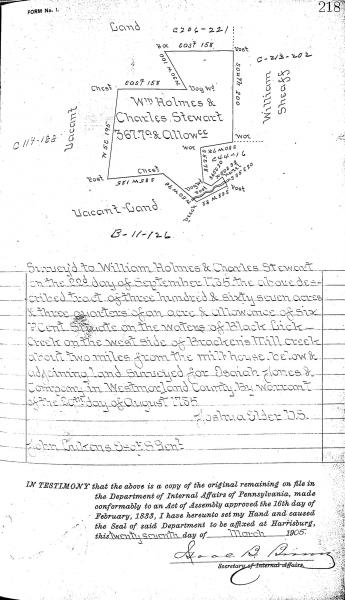 FORM No. 1.
218
Land
C 206-221
Wo
East 158
Post
C-213-202
South 200
William
Sheaff
East 158
Chest
Dog Wd
Wm Holmes &
Charles. Stewart
367.7a & Allowce
C 117-188
Vacant
N 5 E 195
Wo
Post
Chest
Vacant Land
B-11-126
Survey'd to William Holmes & Charles Stewart
on the 22nd day of September 1785 the above des-
cribed tract of three hundred & sixty seven acres
& three quarters of an acre & allowance of six
P Cent Situate on the waters of Black Lick
Creek on the west side of Bracken's Mill creek
about two miles from the mill house, below &
adjoining land surveyed for Isaiah Jones &
Company in Westmorland County by warrant
of the 20th day of August 1785.
Joshua Elder D.S.
John Lukens Esqr S Genl
IN TESTIMONY that the above is a copy of the original remaining on file in
the Department of Internal Affairs of Pennsylvania, made
conformably to an Act of Assembly approved the 16th day of
February, 1833, I have hereunto set my Hand and caused
the Seal of said Department to be affixed at Harrisburg,
this twenty seventh day of March 1905.
Isaac B. Brown
Secretary of Internal Affairs.